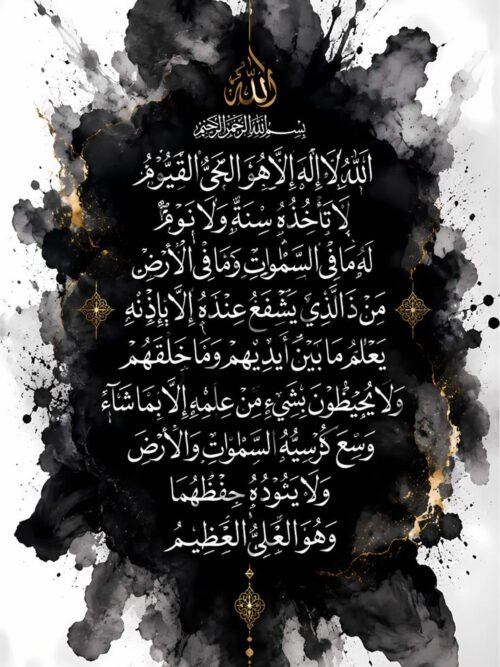 الله
بسم الله الرحمن الرحيم
اَللّٰهُ لَا إِلٰهَ إِلَّا هُوَ الْحَيُّ الْقَيُّوْمُ
لَا تَأْخُذُهُ سِنَةٌ وَلَا نَوْمٌ
لَهُ مَا فِي السَّمٰوٰتِ وَمَا فِي الْأَرْضِ
مَنْ ذَا الَّذِيْ يَشْفَعُ عِنْدَهُ إِلَّا بِإِذْنِهِ
يَعْلَمُ مَا بَيْنَ أَيْدِيْهِمْ وَمَا خَلْقَهُمْ
وَلَا يُحِيْظُوْنَ بِشَيْءٍ مِنْ عِلْمِهِ إِلَّا بِمَا شَاءَ
وَسِعَ كُرْسِيُّهُ السَّمٰوٰتِ وَالْأَرْضَ
وَلَا يَئُوْدُهُ حِفْظُهُمَا
وَهُوَ الْعَلِيُّ الْعَظِيْمُ